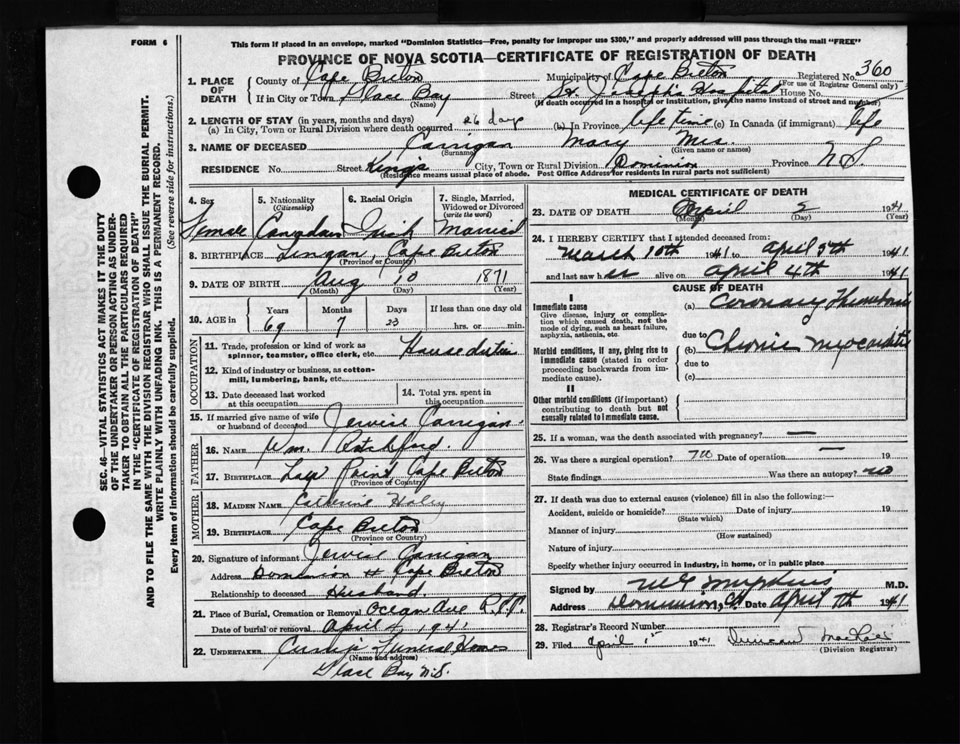 FORM 6
This form if placed in an envelope, marked "Dominion Statistics—Free, penalty for improper use $300," and properly addressed will pass through the mail "FREE"
PROVINCE OF NOVA SCOTIA—CERTIFICATE OF REGISTRATION OF DEATH
SEC. 46—VITAL STATISTICS ACT MAKES IT THE DUTY
OF THE UNDERTAKER OR PERSON ACTING AS UNDER-
TAKER TO OBTAIN ALL THE PARTICULARS REQUIRED
IN THE "CERTIFICATE OF REGISTRATION OF DEATH"
AND TO FILE THE SAME WITH THE DIVISION REGISTRAR WHO SHALL ISSUE THE BURIAL PERMIT.
WRITE PLAINLY WITH UNFADING INK. THIS IS A PERMANENT RECORD.
Every item of information should be carefully supplied. (See reverse side for instructions.)
1. PLACE OF DEATH
County of Cape Breton Municipality of Cape Breton Registered No. 360
(For use of Registrar General only)
If in City or Town Glace Bay Street St. Josephs Hospital House No.
(Name) (If death occurred in a hospital or institution, give the name instead of street and number)
2. LENGTH OF STAY (in years, months and days)
(a) In City, Town or Rural Division where death occurred 26 days (b) In Province life time (c) In Canada (if immigrant) life
3. NAME OF DECEASED Carrigan Mary Mrs.
(Surname) (Given name or names)
RESIDENCE No. Street Kings City, Town or Rural Division Dominion Province N S
(Residence means usual place of abode. Post Office Address for residents in rural parts not sufficient)
4. Sex Female
5. Nationality (Citizenship) Canadian
6. Racial Origin Irish
7. Single, Married, Widowed or Divorced (write the word) Married
8. BIRTHPLACE Lingan, Cape Breton
(Province or Country)
9. DATE OF BIRTH Aug 10 1871
(Month) (Day) (Year)
10. AGE in Years 69 Months 7 Days 23 If less than one day old hrs. or min.
OCCUPATION
11. Trade, profession or kind of work as spinner, teamster, office clerk, etc. House duties
12. Kind of industry or business, as cotton-mill, lumbering, bank, etc.
13. Date deceased last worked at this occupation
14. Total yrs. spent in this occupation
15. If married give name of wife or husband of deceased Carrigan
FATHER
16. NAME Wm.
17. BIRTHPLACE Low Point Cape Breton
(Province or Country)
MOTHER
18. MAIDEN NAME Catherine Haley
19. BIRTHPLACE Cape Breton
(Province or Country)
20. Signature of informant Carrigan
Address Dominion Cape Breton
Relationship to deceased Husband
21. Place of Burial, Cremation or Removal Ocean Ave
Date of burial or removal April 4 1941
22. UNDERTAKER Funeral Home
(Name and address)
Glace Bay N.S.
MEDICAL CERTIFICATE OF DEATH
23. DATE OF DEATH April 2 1941
(Month) (Day) (Year)
24. I HEREBY CERTIFY that I attended deceased from:
March 10th 1941 to April 1941
and last saw her alive on April 4th 1941
CAUSE OF DEATH
I
Immediate cause
Give disease, injury or complication which caused death, not the mode of dying, such as heart failure, asphyxia, asthenia, etc.
(a) Coronary Thrombosis
due to
Morbid conditions, if any, giving rise to immediate cause (stated in order proceeding backwards from immediate cause).
(b) Chronic myocarditis
due to
(c)
II
Other morbid conditions (if important) contributing to death but not causally related to immediate cause.
25. If a woman, was the death associated with pregnancy? —
26. Was there a surgical operation? no Date of operation — 19
State findings Was there an autopsy? no
27. If death was due to external causes (violence) fill in also the following:—
Accident, suicide or homicide? Date of injury 19
(State which)
Manner of injury
(How sustained)
Nature of injury
Specify whether injury occurred in industry, in home, or in public place
Signed by M.D.
Address Dominion, C.B. Date April 1941
28. Registrar's Record Number
29. Filed April 1941 Duncan
(Division Registrar)